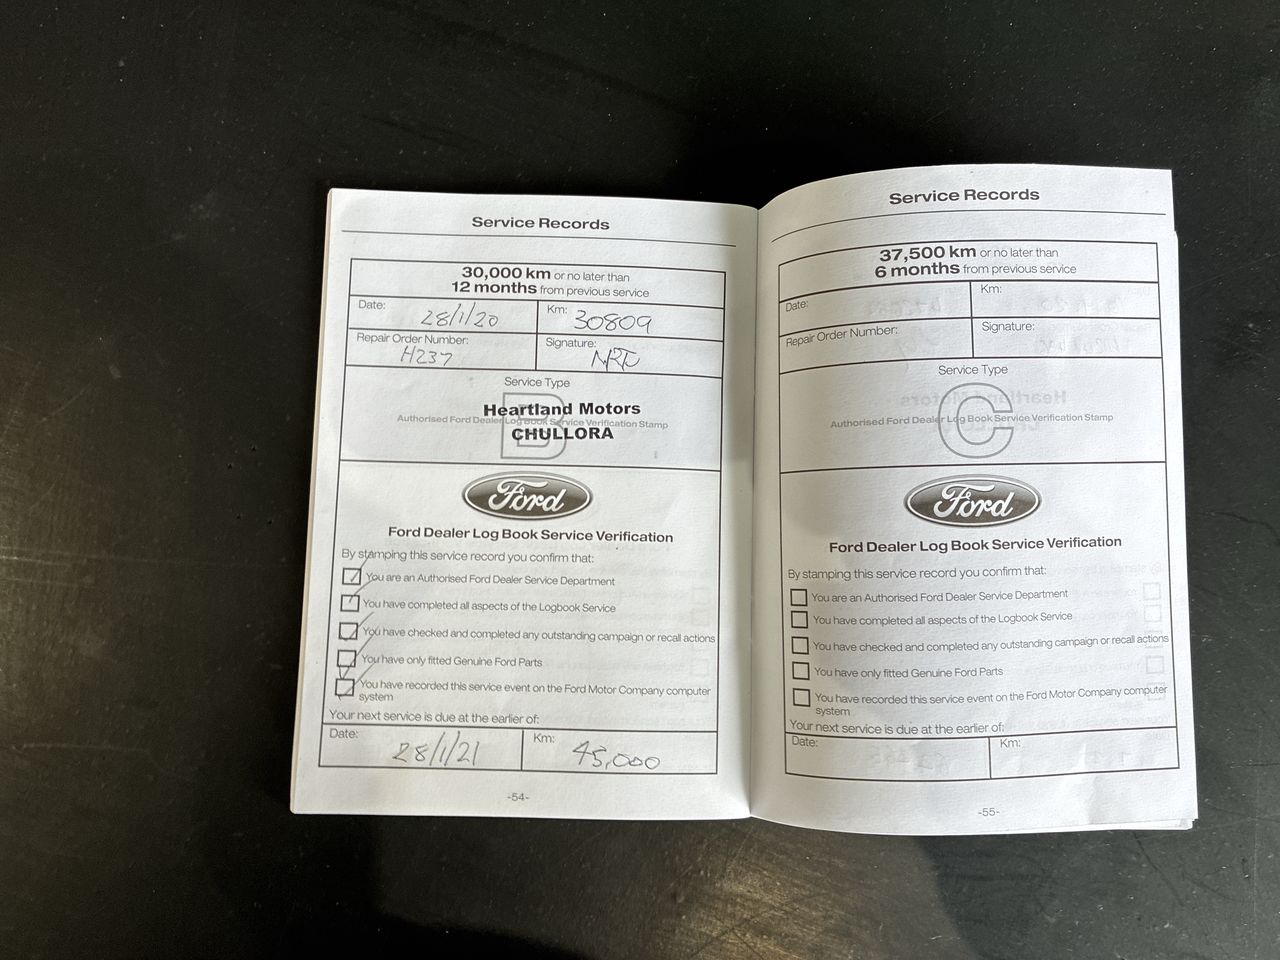 Service Records
30,000 km or no later than
12 months from previous service
Date: 28/1/20
Km: 30809
Repair Order Number:
H237
Signature:
Service Type
B
Heartland Motors
Authorised Ford Dealer Log Book Service Verification Stamp
CHULLORA
Ford
Ford Dealer Log Book Service Verification
By stamping this service record you confirm that:
You are an Authorised Ford Dealer Service Department
You have completed all aspects of the Logbook Service
You have checked and completed any outstanding campaign or recall actions
You have only fitted Genuine Ford Parts
You have recorded this service event on the Ford Motor Company computer
system
Your next service is due at the earlier of:
Date: 28/1/21
Km: 45,000
-54-
Service Records
37,500 km or no later than
6 months from previous service
Date:
Km:
Repair Order Number:
Signature:
Service Type
C
Authorised Ford Dealer Log Book Service Verification Stamp
Ford
Ford Dealer Log Book Service Verification
By stamping this service record you confirm that:
You are an Authorised Ford Dealer Service Department
You have completed all aspects of the Logbook Service
You have checked and completed any outstanding campaign or recall actions
You have only fitted Genuine Ford Parts
You have recorded this service event on the Ford Motor Company computer
system
Your next service is due at the earlier of:
Date:
Km:
-55-